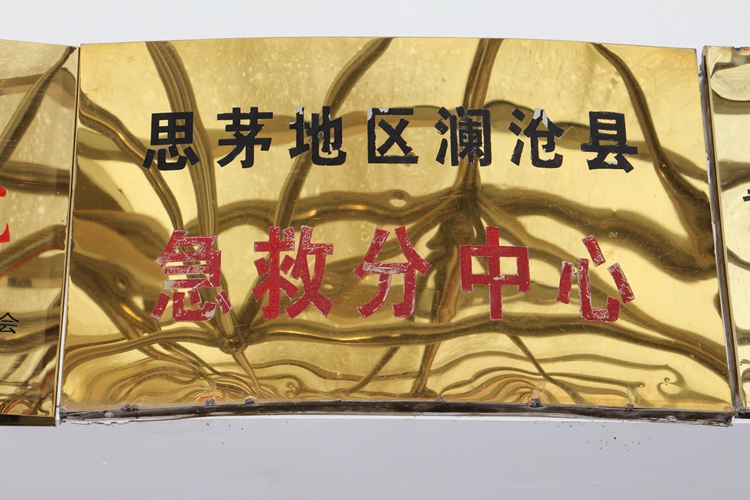 思茅地区澜沧县
急救分中心
会